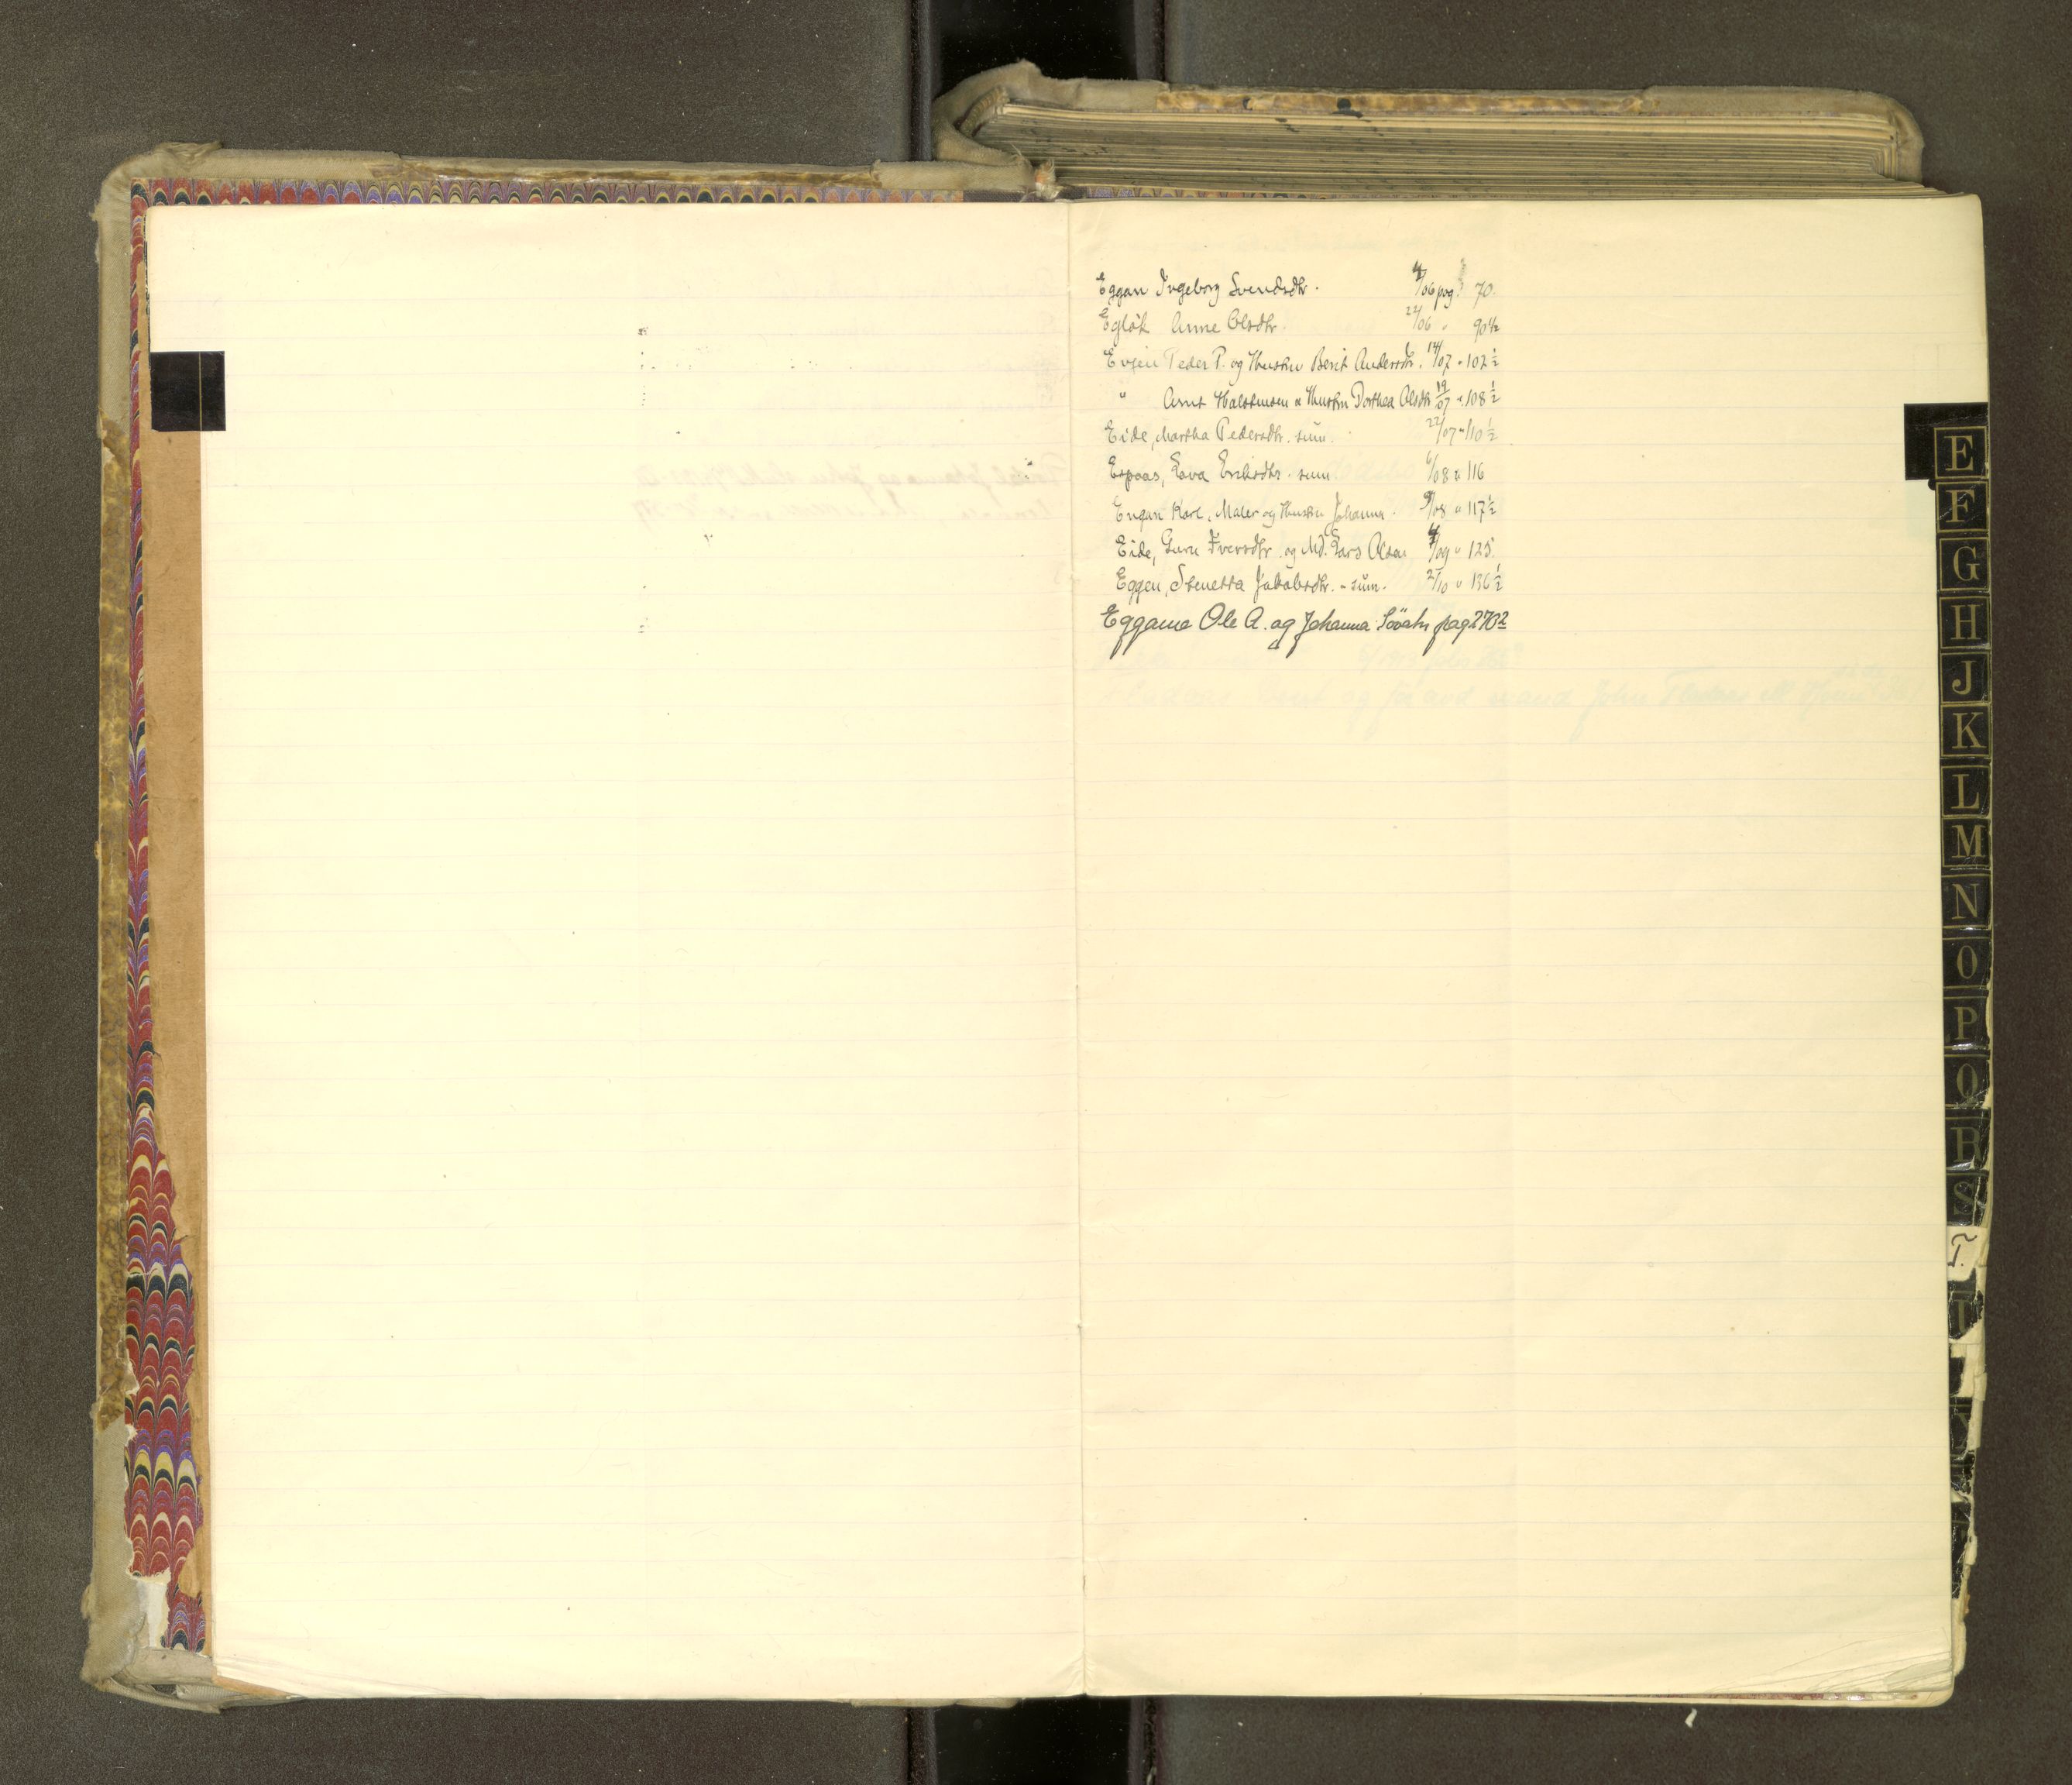 Eggan Ingeborg Svendsdtr. /06 pag. 70.
Egløk Anne Olsdtr. 22/06 " 90 1/2
Evjen Peder P. og Hustru Berit Andersdtr. 14/07 " 107 1/2
" Arnt Halstensen & Hustru Dorthea Olsdtr 19/07 " 108 1/2
Eide, Martha Pedersdtr. sum. 22/07 " 110 1/2
Espaas, Eriksdtr. sum 6/08 " 116
Engan Karl, Maler og Hustru Johanna. 9/08 " 117 1/2
Eide, Guru Iversdtr. og Md. Lars Olsen /09 " 125
Eggen, Stenetta Jakobsdtr. - sum. 2/10 " 136 1/2
Eggame Ole A. og Johanna pag 270 2
E
F
G
H
J
K
L
M
N
O
P
Q
R
S
T.
T